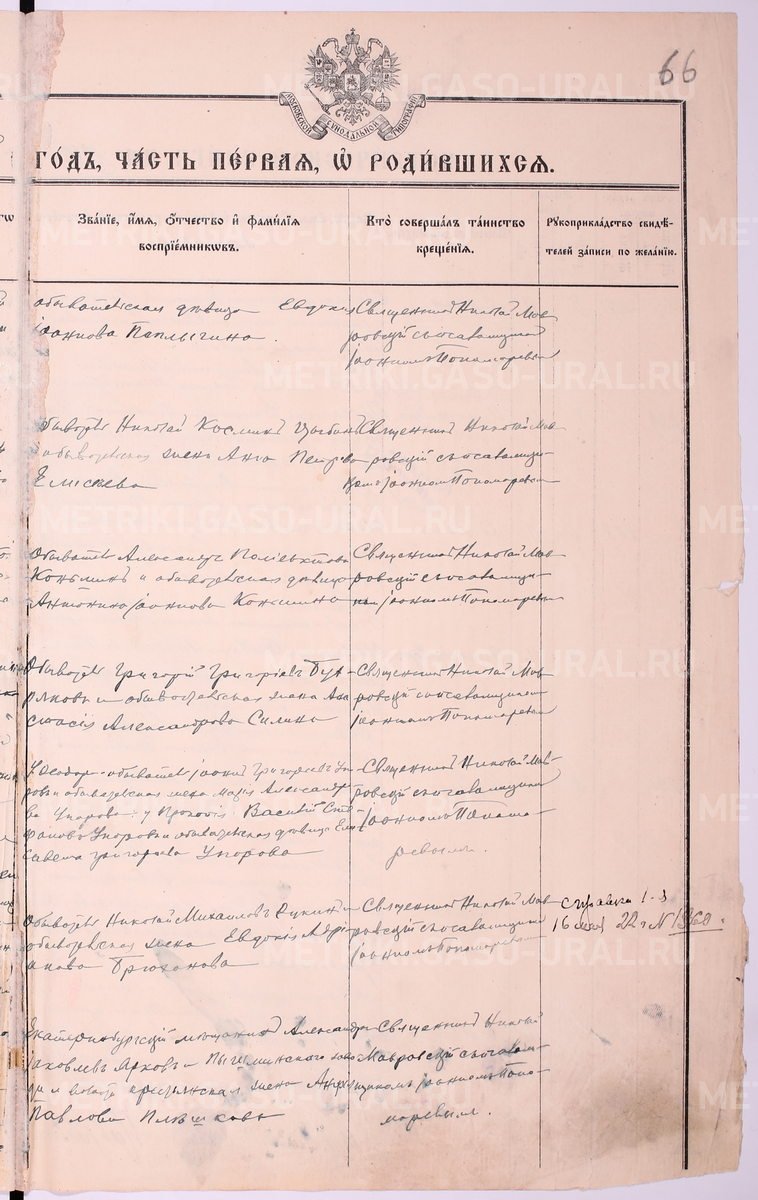 66
МОСКОВСКОЙ СѴНОДАЛЬНОЙ ТИПОГРАФІИ
ГОДЪ, ЧАСТЬ ПЕРВАЯ, Ѡ РОДИВШИХСЯ.
Званіе, имя, отчество и фамилія воспріемниковъ.
Кто совершалъ таинство крещенія.
Рукоприкладство свидѣтелей записи по желанію.
обывательская дѣвица Евдокия
Іоаннова Паплыгина.
Священникъ Николай Мав-
ровскій съ псаломщикомъ
Іоанномъ Пономаревымъ
Николай Косминъ
жена Анна Петрова
Елисѣева
Священникъ Николай Мав-
ровскій съ псаломщи-
комъ Іоанномъ Пономаревымъ
Обыватель Александръ
и обывательская дѣвица
Антонина Іоаннова
Священникъ Николай Мав-
ровскій съ псаломщи-
комъ Іоанномъ Пономаревымъ
Григорій Григоріевъ
и обывательская жена Ана-
стасія Александрова Силина
Священникъ Николай Мав-
ровскій съ псаломщикомъ
Іоанномъ Пономаревымъ
Ѳеодора - обыватель Іоаннъ Григорьевъ Упо-
ровъ и обывательская жена Марія Александро-
ва Упорова: у Прокопія Василій Сте-
фановъ Упоровъ и обывательская дѣвица Ели-
савета Григорьева Упорова
Священникъ Николай Мав-
ровскій съ псаломщикомъ
Іоанномъ Понома-
ревымъ.
Николай Михаиловъ и
обывательская жена Евдокія
Брюханова
Священникъ Николай Мав-
ровскій съ псаломщикомъ
Іоанномъ Пономаревымъ
Справка
16 22 г №1960.
Екатеринбургскій мѣщанинъ Александръ
Яковлевъ Ярковъ и Пышминского заво-
да жена
Павлова Плѣшкова
Священникъ Николай
Мавровскій съ псалом-
щикомъ Іоанномъ Поно-
маревымъ.
METRIKI.GASO-URAL.RU